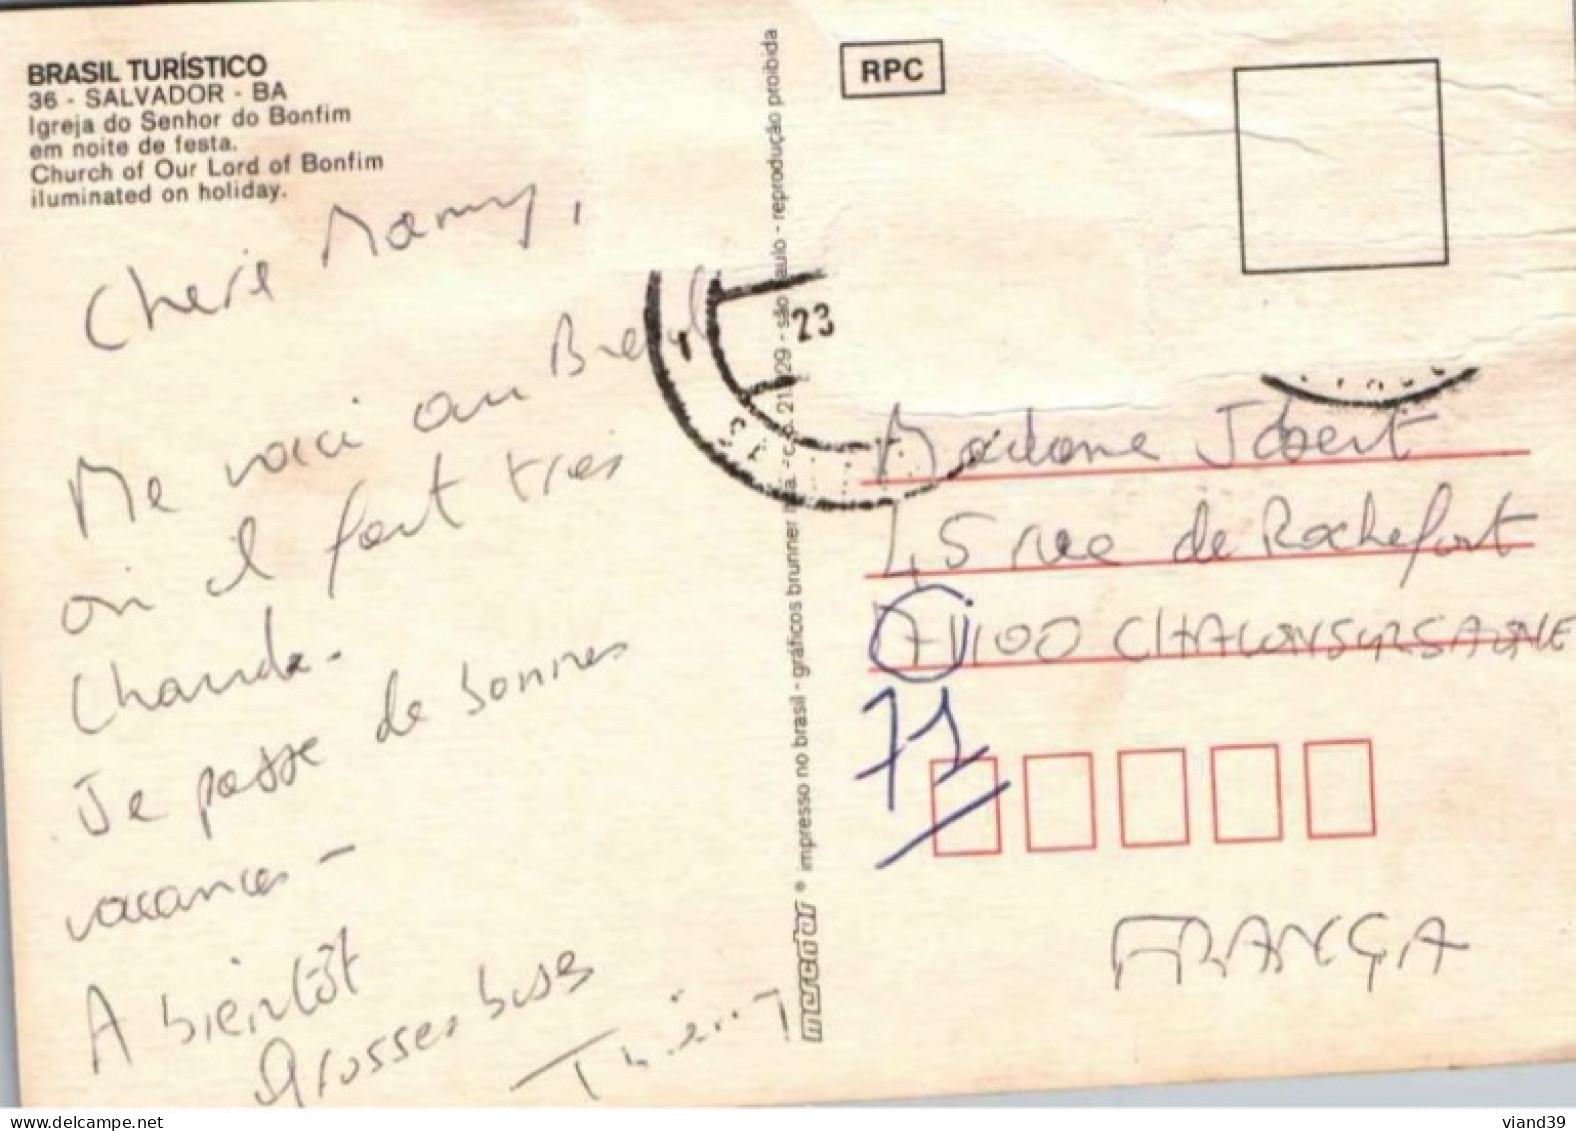 BRASIL TURÍSTICO
36 - SALVADOR - BA
Igreja do Senhor do Bonfim
em noite de festa.
Church of Our Lord of Bonfim
iluminated on holiday.
Cherie Mamy,
Me voici au Bresil
où il fait très
Chaude.
Je passe de bonnes
vacances -
A bientôt
Grosses bises
Thierry
mercator ® impresso no brasil - gráficos brunner - são paulo - reprodução proibida
RPC
23
Madame Jbert
45 rue de Rochefort
71100 CHALON SUR SAONE
71
FRANÇA
viand39